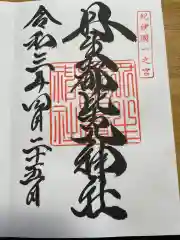 紀伊國一之宮
丹生都比売神社
令和三年四月二十五日